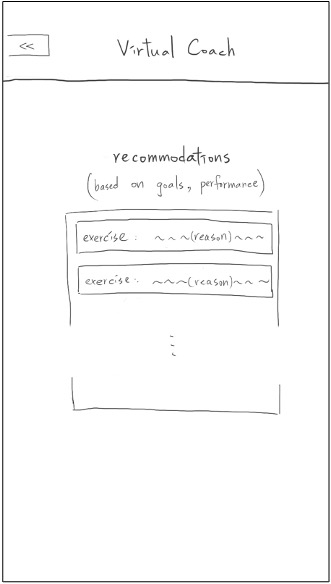 <<
Virtual Coach
recommodations
(based on goals, performance)
exercise : ~~~(reason)~~~
exercise : ~~~(reason)~~~